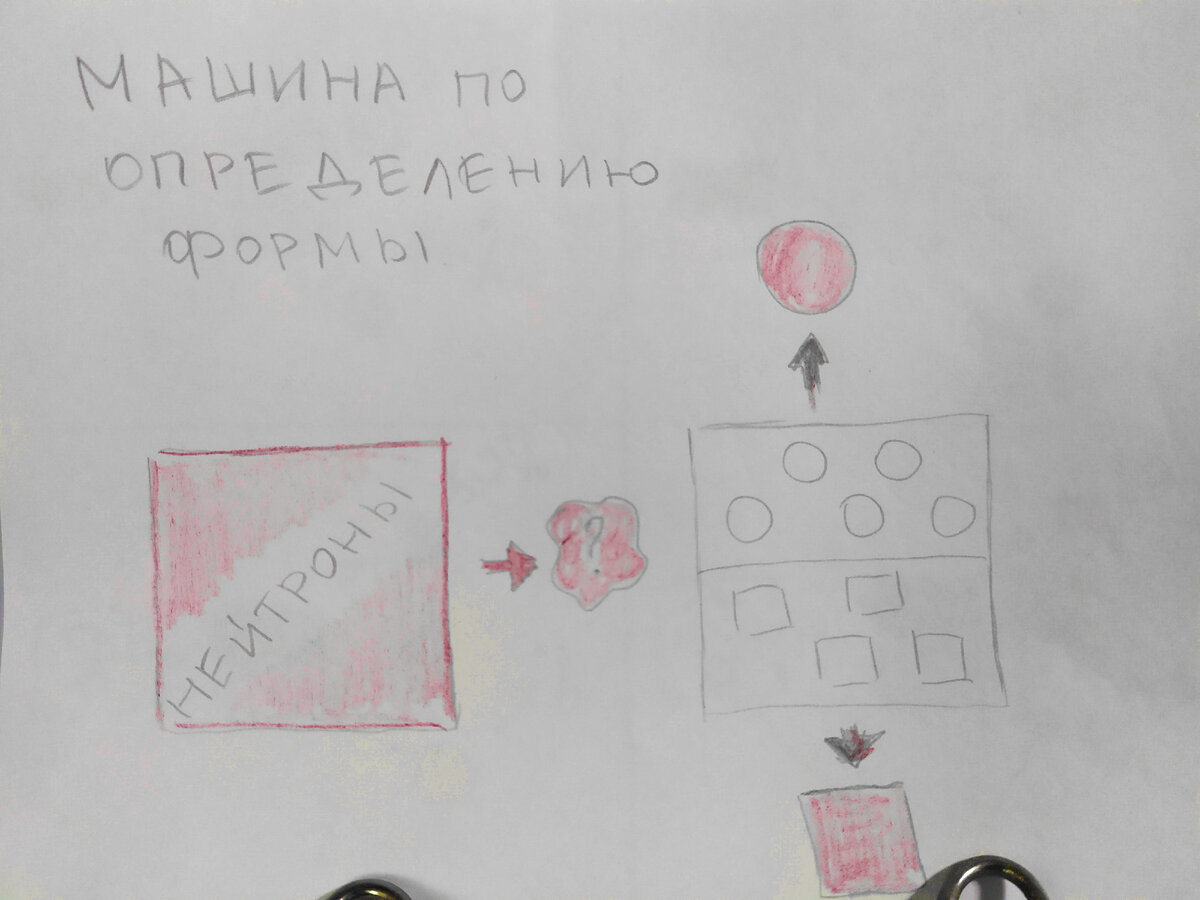 МАШИНА ПО
ОПРЕДЕЛЕНИЮ
ФОРМЫ
НЕЙТРОНЫ
?